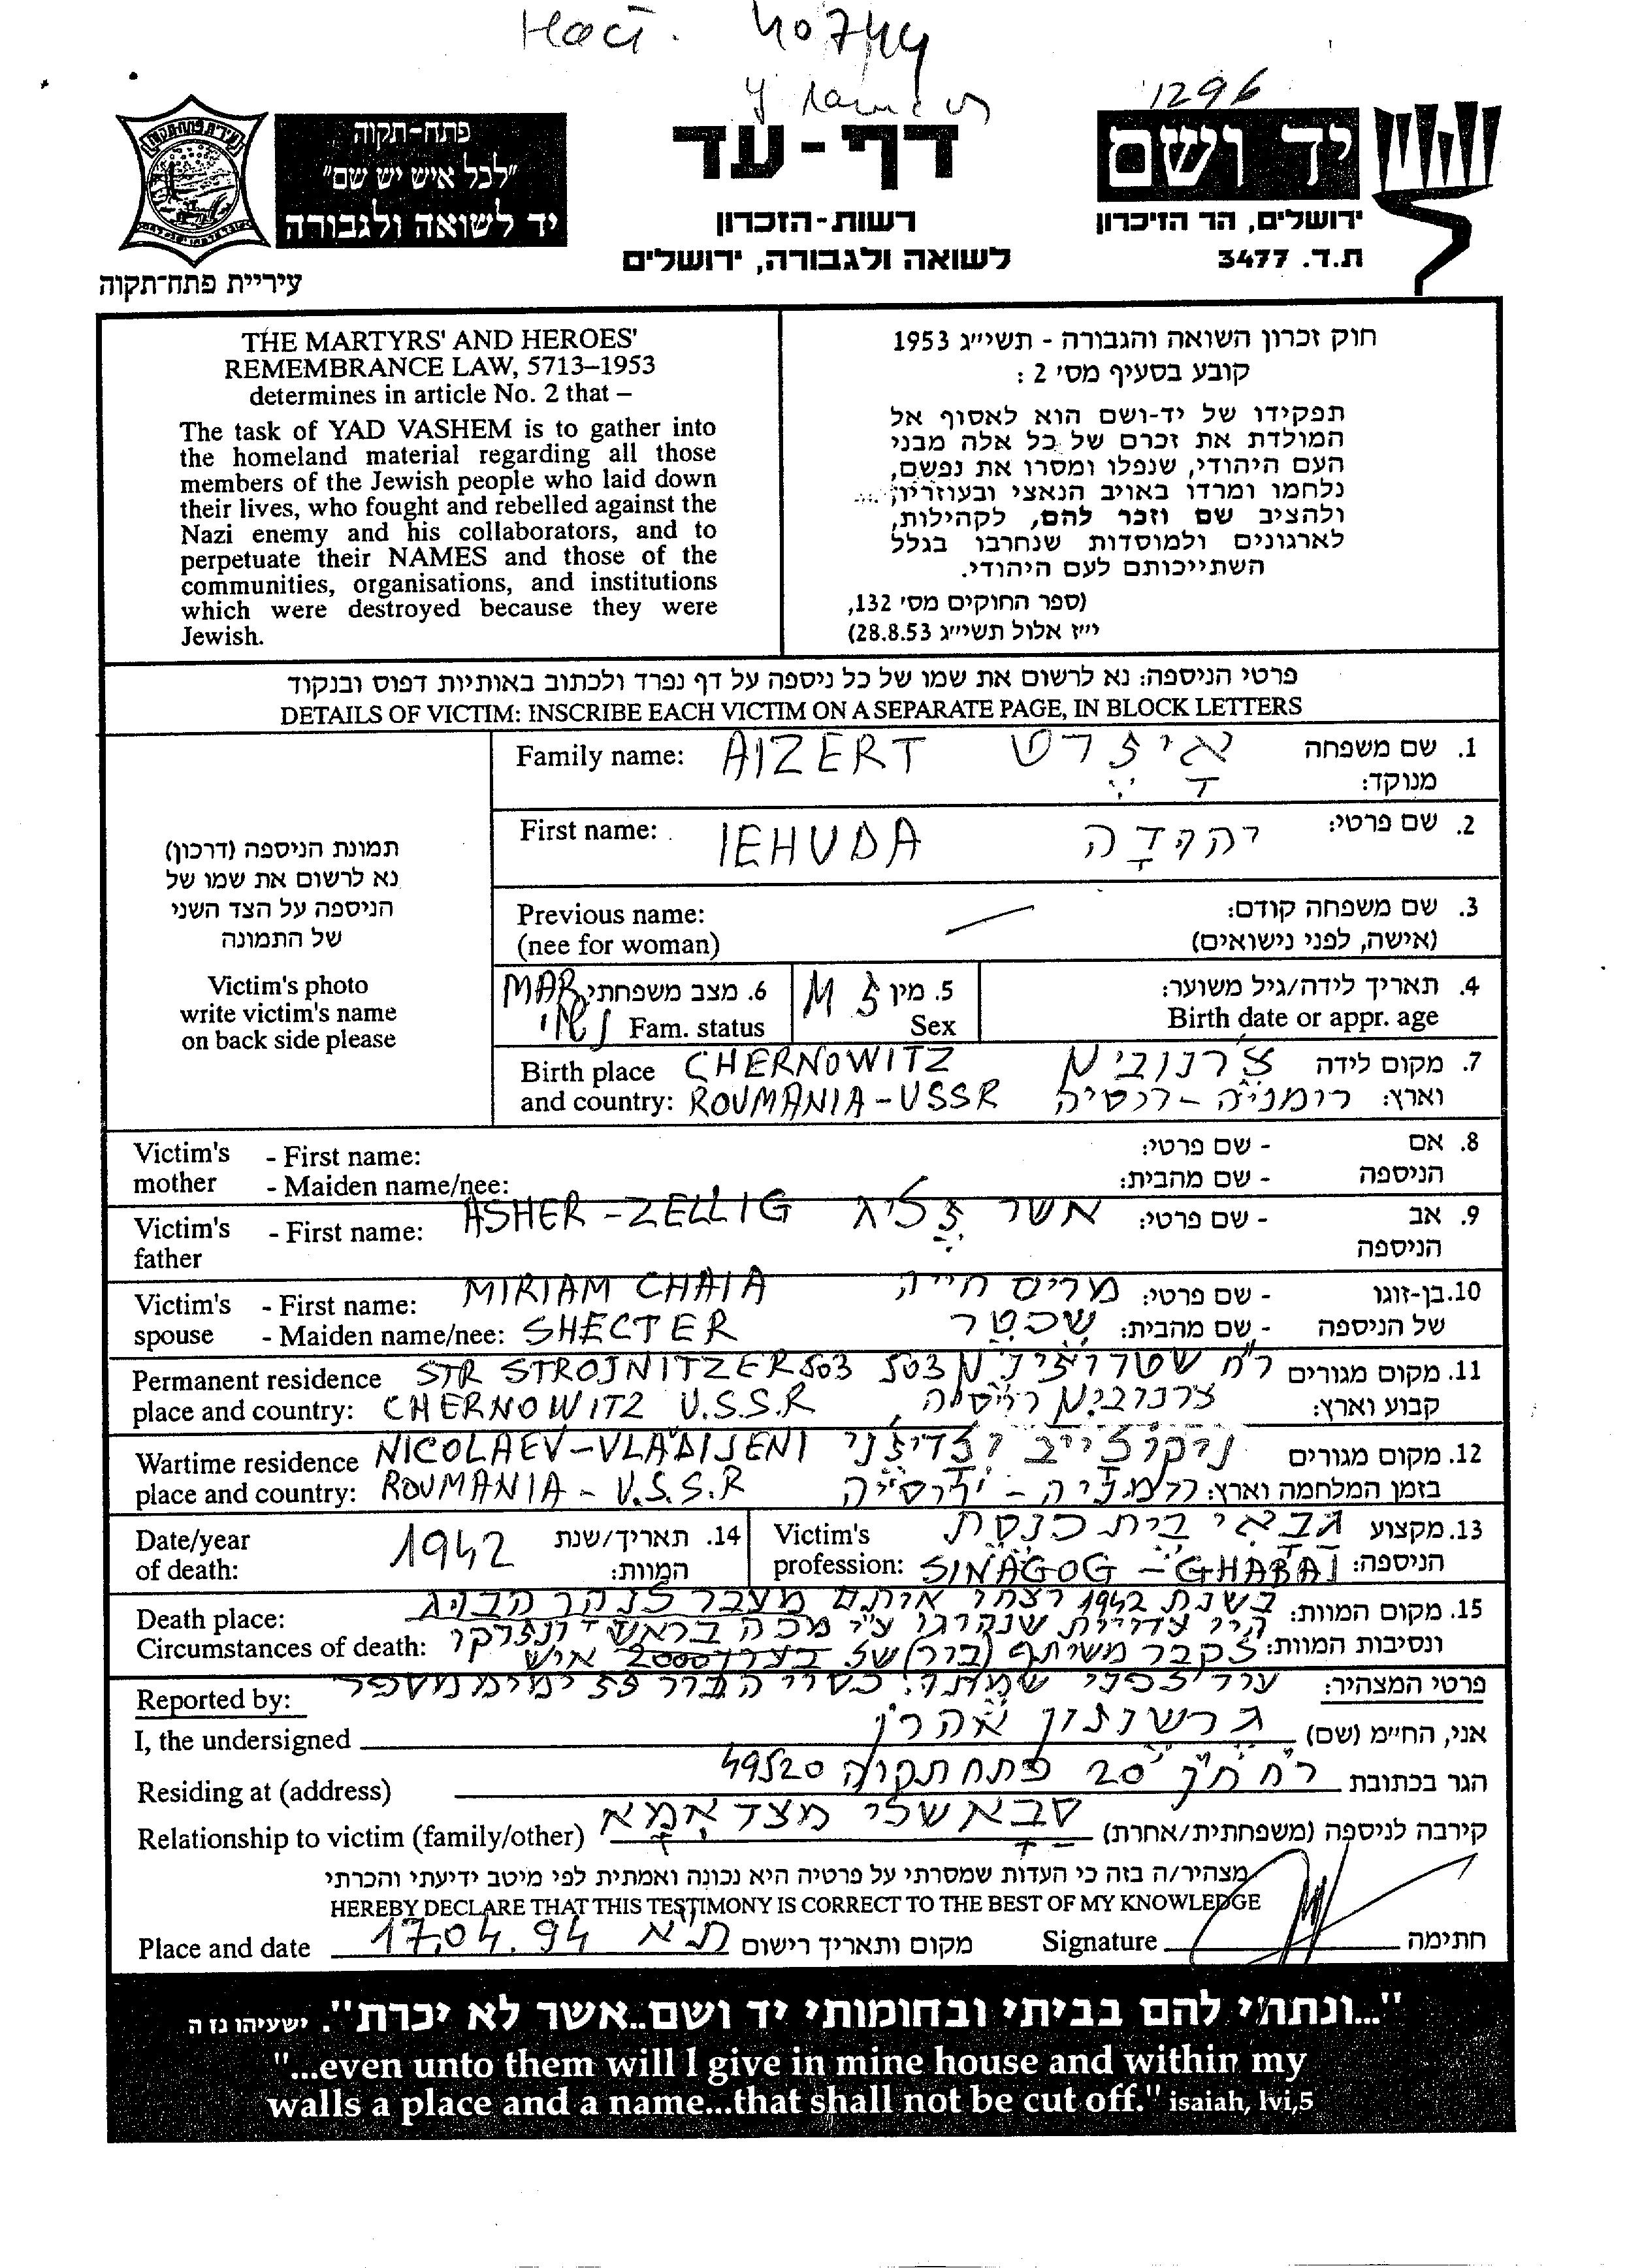 40744
1296
פתח-תקוה
"לכל איש יש שם"
יד לשואה ולגבורה
עיריית פתח-תקוה
דף-עד
רשות-הזכרון
לשואה ולגבורה, ירושלים
יד ושם
ירושלים, הר הזיכרון
ת.ד. 3477
THE MARTYRS' AND HEROES'
REMEMBRANCE LAW, 5713–1953
determines in article No. 2 that –
The task of YAD VASHEM is to gather into
the homeland material regarding all those
members of the Jewish people who laid down
their lives, who fought and rebelled against the
Nazi enemy and his collaborators, and to
perpetuate their NAMES and those of the
communities, organisations, and institutions
which were destroyed because they were
Jewish.
חוק זכרון השואה והגבורה - תשי״ג 1953
קובע בסעיף מס׳ 2 :
תפקידו של יד-ושם הוא לאסוף אל
המולדת את זכרם של כל אלה מבני
העם היהודי, שנפלו ומסרו את נפשם,
נלחמו ומרדו באויב הנאצי ובעוזריו,
ולהציב שם וזכר להם, לקהילות,
לארגונים ולמוסדות שנחרבו בגלל
השתייכותם לעם היהודי.
(ספר החוקים מס׳ 132,
י״ז אלול תשי״ג 28.8.53)
פרטי הניספה: נא לרשום את שמו של כל ניספה על דף נפרד ולכתוב באותיות דפוס ובנקוד
DETAILS OF VICTIM: INSCRIBE EACH VICTIM ON A SEPARATE PAGE, IN BLOCK LETTERS
תמונת הניספה (דרכון)
נא לרשום את שמו של
הניספה על הצד השני
של התמונה
Victim's photo
write victim's name
on back side please
Family name: AIZERT איזרט 1. שם משפחה
מנוקד:
First name: IEHUDA יהודה 2. שם פרטי:
Previous name: 3. שם משפחה קודם:
(nee for woman) (אישה, לפני נישואים)
MAR 6. מצב משפחתי M ז 5. מין 4. תאריך לידה/גיל משוער:
נשוי Fam. status Sex Birth date or appr. age
Birth place CHERNOWITZ צרנוביץ 7. מקום לידה
and country: ROUMANIA-USSR רומניה-רוסיה וארץ:
Victim's - First name: - שם פרטי: 8. אם
mother - Maiden name/nee: - שם מהבית: הניספה
Victim's - First name: ASHER-ZELLIG אשר זליג - שם פרטי: 9. אב
father הניספה
Victim's - First name: MIRIAM CHAIA מרים חייה - שם פרטי: 10. בן-זוגו
spouse - Maiden name/nee: SHECTER שכטר - שם מהבית: של הניספה
Permanent residence STR STROJNITZER 503 503 רח 11. מקום מגורים
place and country: CHERNOWITZ U.S.S.R צרנוביץ קבוע וארץ:
Wartime residence NICOLAEV-VLADIJENI 12. מקום מגורים
place and country: ROUMANIA - U.S.S.R בזמן המלחמה וארץ:
Date/year 1942 14. תאריך/שנת
of death: המוות:
Victim's גבאי בית כנסת 13. מקצוע
profession: SINAGOG - GHABAI הניספה:
Death place: בשנת 1942 רצחו אותם מעבר לנהר הבוג 15. מקום המוות:
Circumstances of death: היו עדויות שנהרגו ע״י מכה בראש ונזרקו ונסיבות המוות:
לקבר משותף (בור) של בערך 2000 איש
Reported by: פרטי המצהיר:
I, the undersigned גרשונזון אהרן אני, החיימ (שם)
Residing at (address) 20 פתח תקוה 49520 הגר בכתובת
Relationship to victim (family/other) סבא שלי מצד אמא קירבה לניספה (משפחתית/אחרת)
מצהיר/ה בזה כי העדות שמסרתי על פרטיה היא נכונה ואמתית לפי מיטב ידיעתי והכרתי
HEREBY DECLARE THAT THIS TESTIMONY IS CORRECT TO THE BEST OF MY KNOWLEDGE
Place and date 17.04.94 ת״א מקום ותאריך רישום Signature חתימה
"...ונתתי להם בביתי ובחומותי יד ושם..אשר לא יכרת". ישעיהו נז ה
"...even unto them will I give in mine house and within my
walls a place and a name...that shall not be cut off." isaiah, lvi,5